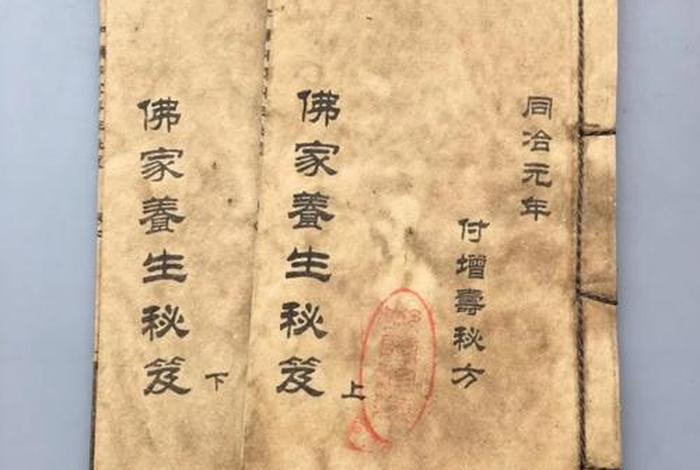 同冶元年
付增壽秘方
佛家養生秘笈上
佛家養生秘笈下